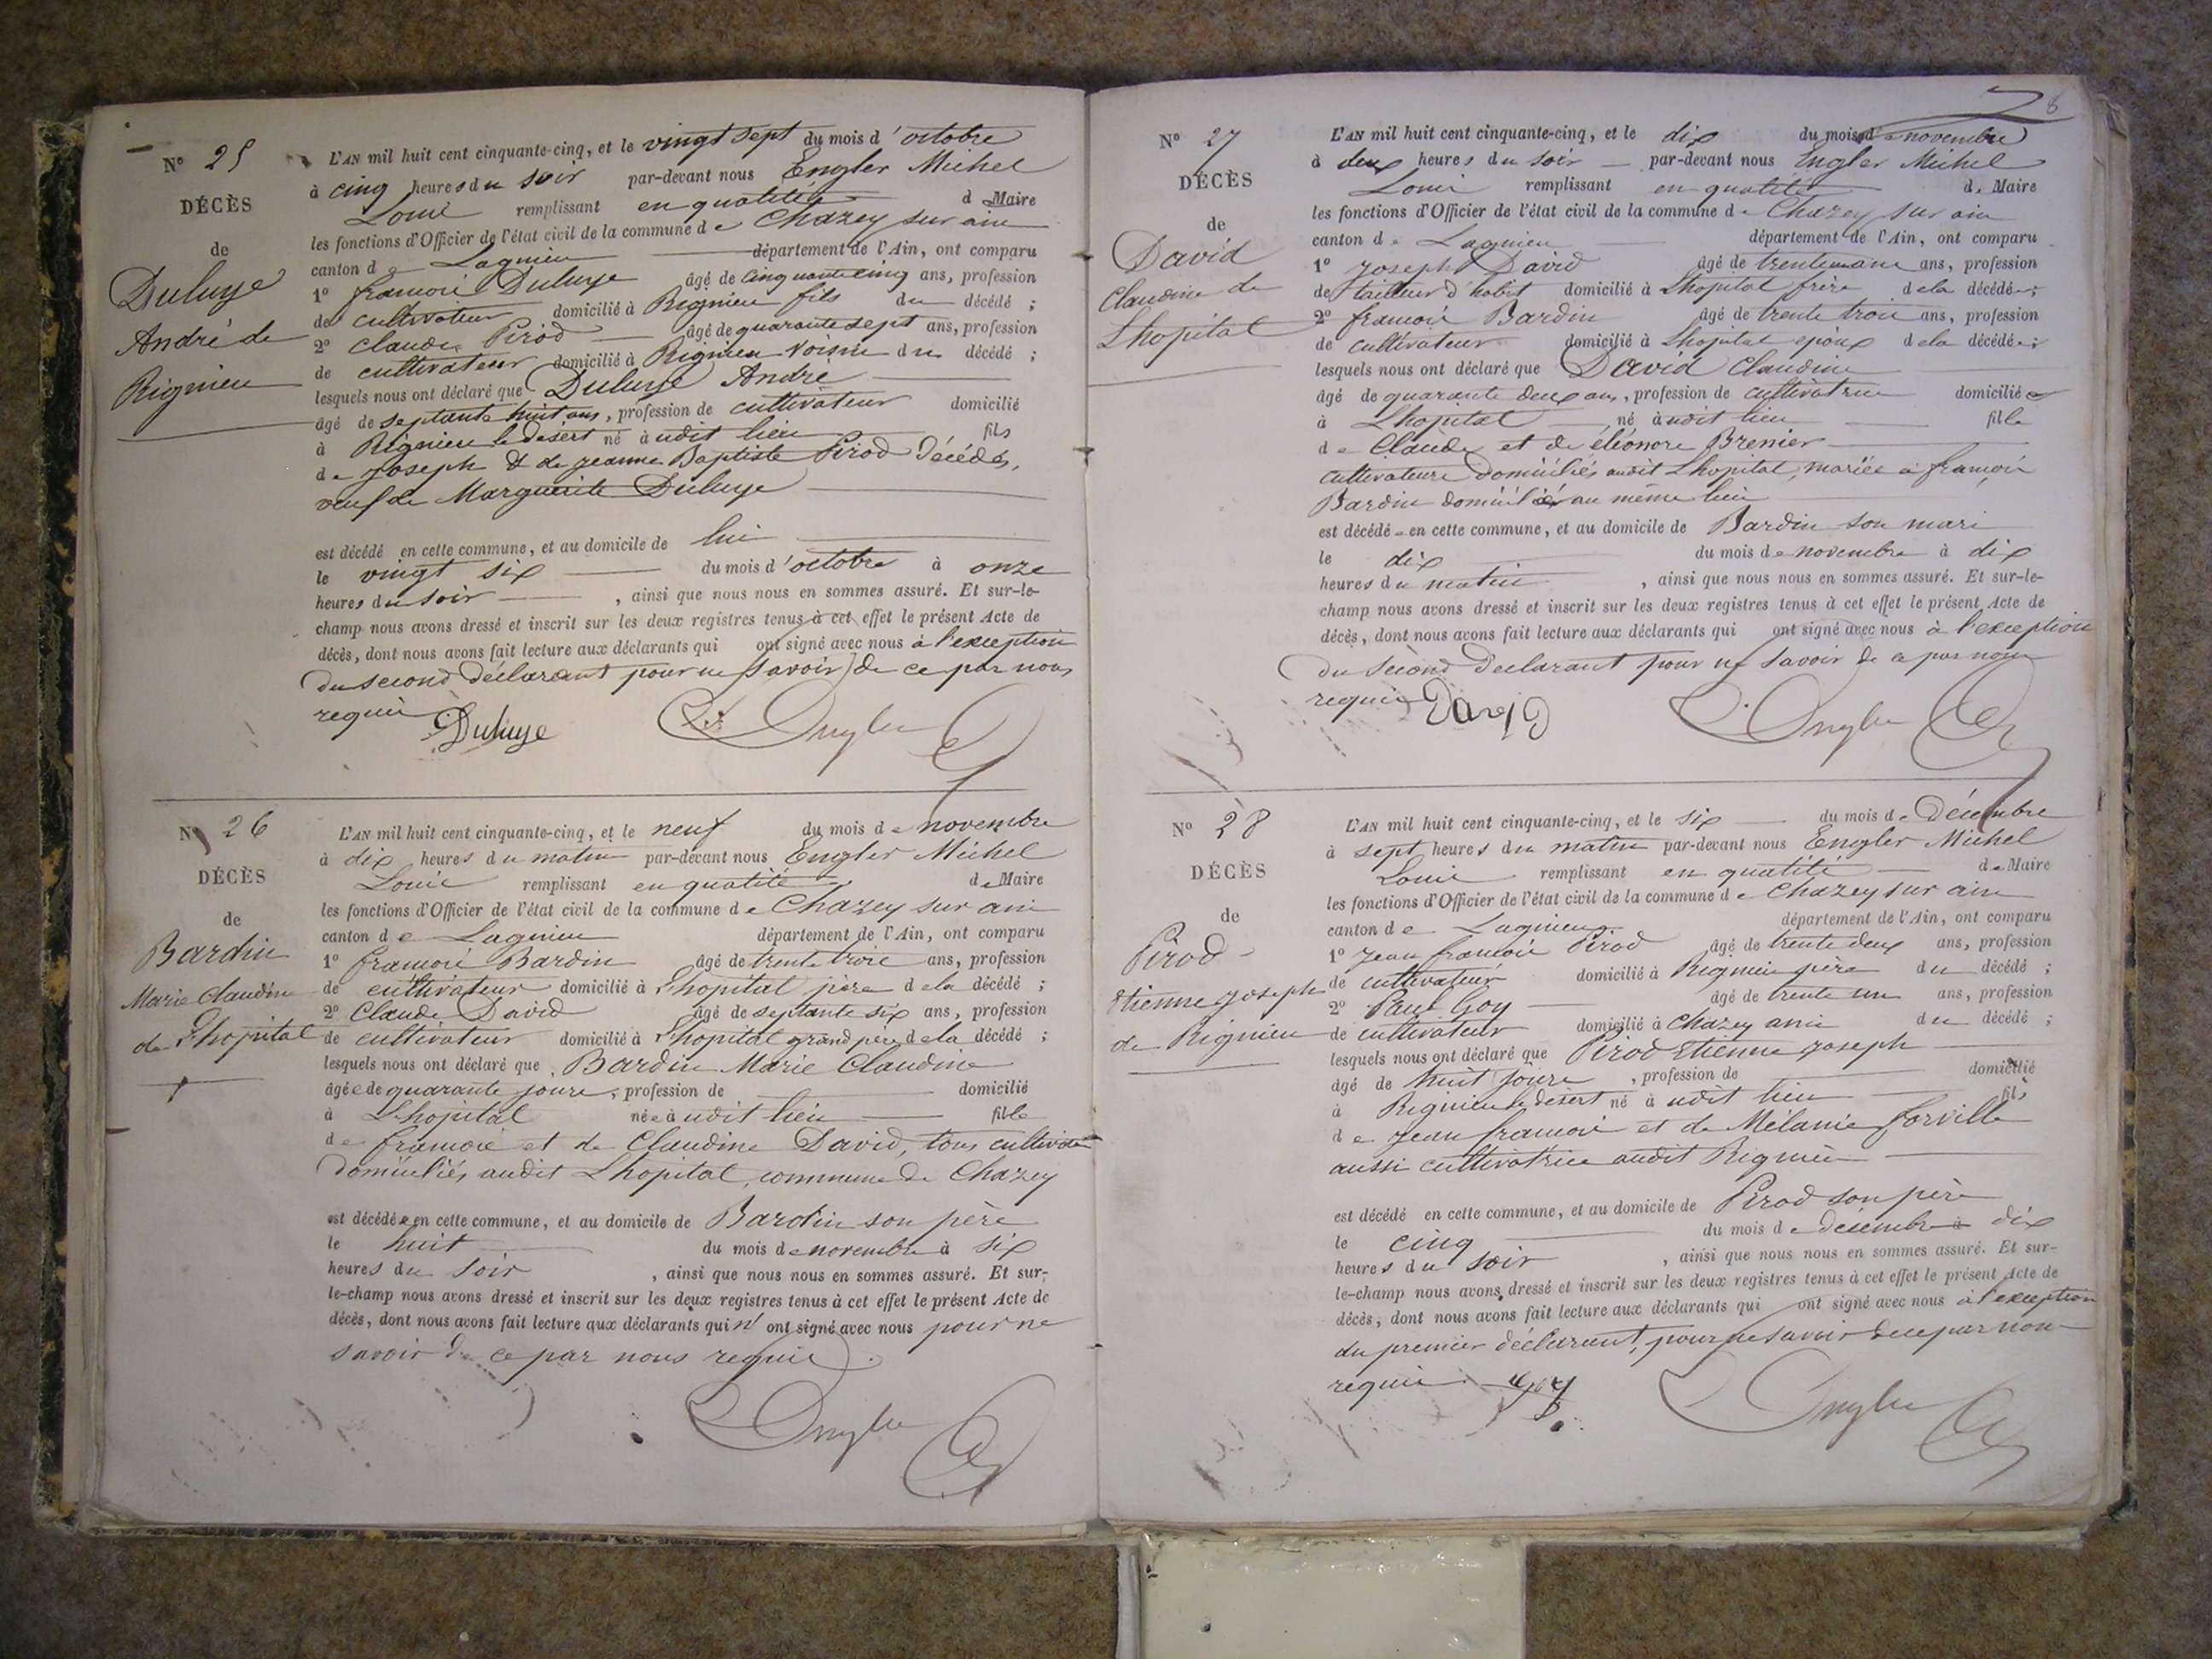 N° 25
DÉCÈS
de
Duluye
André de
Rignieu
L'AN mil huit cent cinquante-cinq, et le vingt sept du mois d'octobre
à cinq heures du soir par-devant nous Engler Michel
Louis remplissant en qualité de Maire
les fonctions d'Officier de l'état civil de la commune de Chazey sur ain
canton de Lagnieu département de l'Ain, ont comparu
1° françois Duluye âgé de cinquante cinq ans, profession
de cultivateur domicilié à Rignieu fils du décédé ;
2° Claude Pirod âgé de quarante sept ans, profession
de cultivateur domicilié à Rignieu voisin du décédé ;
lesquels nous ont déclaré que Duluye André
âgé de septante huit ans, profession de cultivateur domicilié
à Rignieu le désert né à udit lieu fils
de Joseph & de jeanne Baptiste Pirod décédés,
veuf de Marguerite Duluye
est décédé en cette commune, et au domicile de lui
le vingt six du mois d'octobre à onze
heures du soir , ainsi que nous nous en sommes assuré. Et sur-le-
champ nous avons dressé et inscrit sur les deux registres tenus à cet effet le présent Acte de
décès, dont nous avons fait lecture aux déclarants qui ont signé avec nous à l'exception
du second déclarant pour ne savoir de ce par nous
requis
Duluye L. Engler
N° 26
DÉCÈS
de
Bardin
Marie Claudine
de Lhopital
L'AN mil huit cent cinquante-cinq, et le neuf du mois de novembre
à dix heures du matin par-devant nous Engler Michel
Louis remplissant en qualité de Maire
les fonctions d'Officier de l'état civil de la commune de Chazey sur ain
canton de Lagnieu département de l'Ain, ont comparu
1° françois Bardin âgé de trente trois ans, profession
de cultivateur domicilié à Lhopital père de la décédé ;
2° Claude David âgé de septante six ans, profession
de cultivateur domicilié à Lhopital grand père de la décédé ;
lesquels nous ont déclaré que Bardin Marie Claudine
âgée de quarante jours, profession de domicilié
à Lhopital née à udit lieu fille
de françois et de Claudine David, tous
domiciliés audit Lhopital, commune de Chazey
est décédée en cette commune, et au domicile de Bardin son père
le huit du mois de novembre à six
heures du soir , ainsi que nous nous en sommes assuré. Et sur-
le-champ nous avons dressé et inscrit sur les deux registres tenus à cet effet le présent Acte de
décès, dont nous avons fait lecture aux déclarants qui n'ont signé avec nous pour ne
savoir de ce par nous requis.
L. Engler
8
N° 27
DÉCÈS
de
David
Claudine de
Lhopital
L'AN mil huit cent cinquante-cinq, et le dix du mois de novembre
à deux heures du soir par-devant nous Engler Michel
Louis remplissant en qualité de Maire
les fonctions d'Officier de l'état civil de la commune de Chazey sur ain
canton de Lagnieu département de l'Ain, ont comparu
1° Joseph David âgé de ans, profession
de tailleur d'habit domicilié à Lhopital frère de la décédée ;
2° françois Bardin âgé de trente trois ans, profession
de cultivateur domicilié à Lhopital époux de la décédée ;
lesquels nous ont déclaré que David Claudine
âgé de quarante deux ans, profession de cultivatrice domiciliée
à Lhopital né à udit lieu fille
de Claude et de éléonore Brenier
cultivateurs domiciliés audit Lhopital, mariée à françois
Bardin domicilié au même lieu
est décédée en cette commune, et au domicile de Bardin son mari
le dix du mois de novembre à dix
heures du matin , ainsi que nous nous en sommes assuré. Et sur-le-
champ nous avons dressé et inscrit sur les deux registres tenus à cet effet le présent Acte de
décès, dont nous avons fait lecture aux déclarants qui ont signé avec nous à l'exception
du second déclarant pour ne savoir de ce par nous
requis David L. Engler
N° 28
DÉCÈS
de
Pirod
Etienne joseph
de Rignieu
L'AN mil huit cent cinquante-cinq, et le six du mois de Décembre
à sept heures du matin par-devant nous Engler Michel
Louis remplissant en qualité de Maire
les fonctions d'Officier de l'état civil de la commune de Chazey sur ain
canton de Lagnieu département de l'Ain, ont comparu
1° Jean françois Pirod âgé de trente deux ans, profession
de cultivateur domicilié à Rignieu père du décédé ;
2° Paul Goy âgé de trente un ans, profession
de cultivateur domicilié à Chazey du décédé ;
lesquels nous ont déclaré que Pirod Etienne joseph
âgé de huit jours, profession de domicilié
à Rignieu le désert né à udit lieu fils
de Jean françois et de Mélanie forville
aussi cultivatrice audit Rignieu
est décédé en cette commune, et au domicile de Pirod son père
le cinq du mois de décembre à dix
heures du soir , ainsi que nous nous en sommes assuré. Et sur-
le-champ nous avons dressé et inscrit sur les deux registres tenus à cet effet le présent Acte de
décès, dont nous avons fait lecture aux déclarants qui ont signé avec nous à l'exception
du premier déclarant, pour ne savoir de ce par nous
requis. goy L. Engler